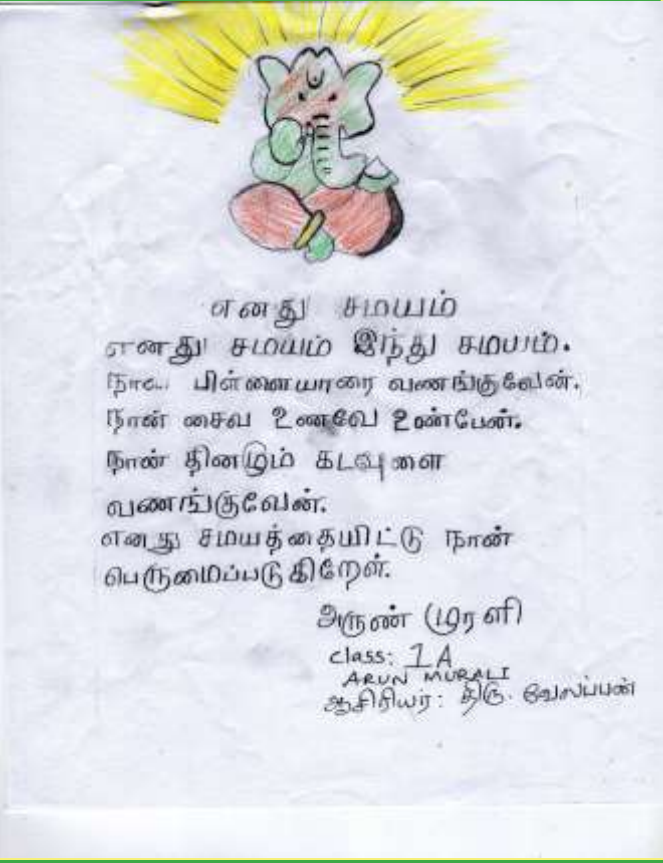 எனது சமயம்
எனது சமயம் இந்து சமயம்.
நான் பிள்ளையாரை வணங்குவேன்.
நான் சைவ உணவே உண்பேன்.
நான் தினமும் கடவுளை
வணங்குவேன்.
எனது சமயத்தையிட்டு நான்
பெருமைப்படுகிறேன்.
அருண் முரளி
class: 1A
ARUN MURALI
ஆசிரியர்: திரு. வேலப்பன்